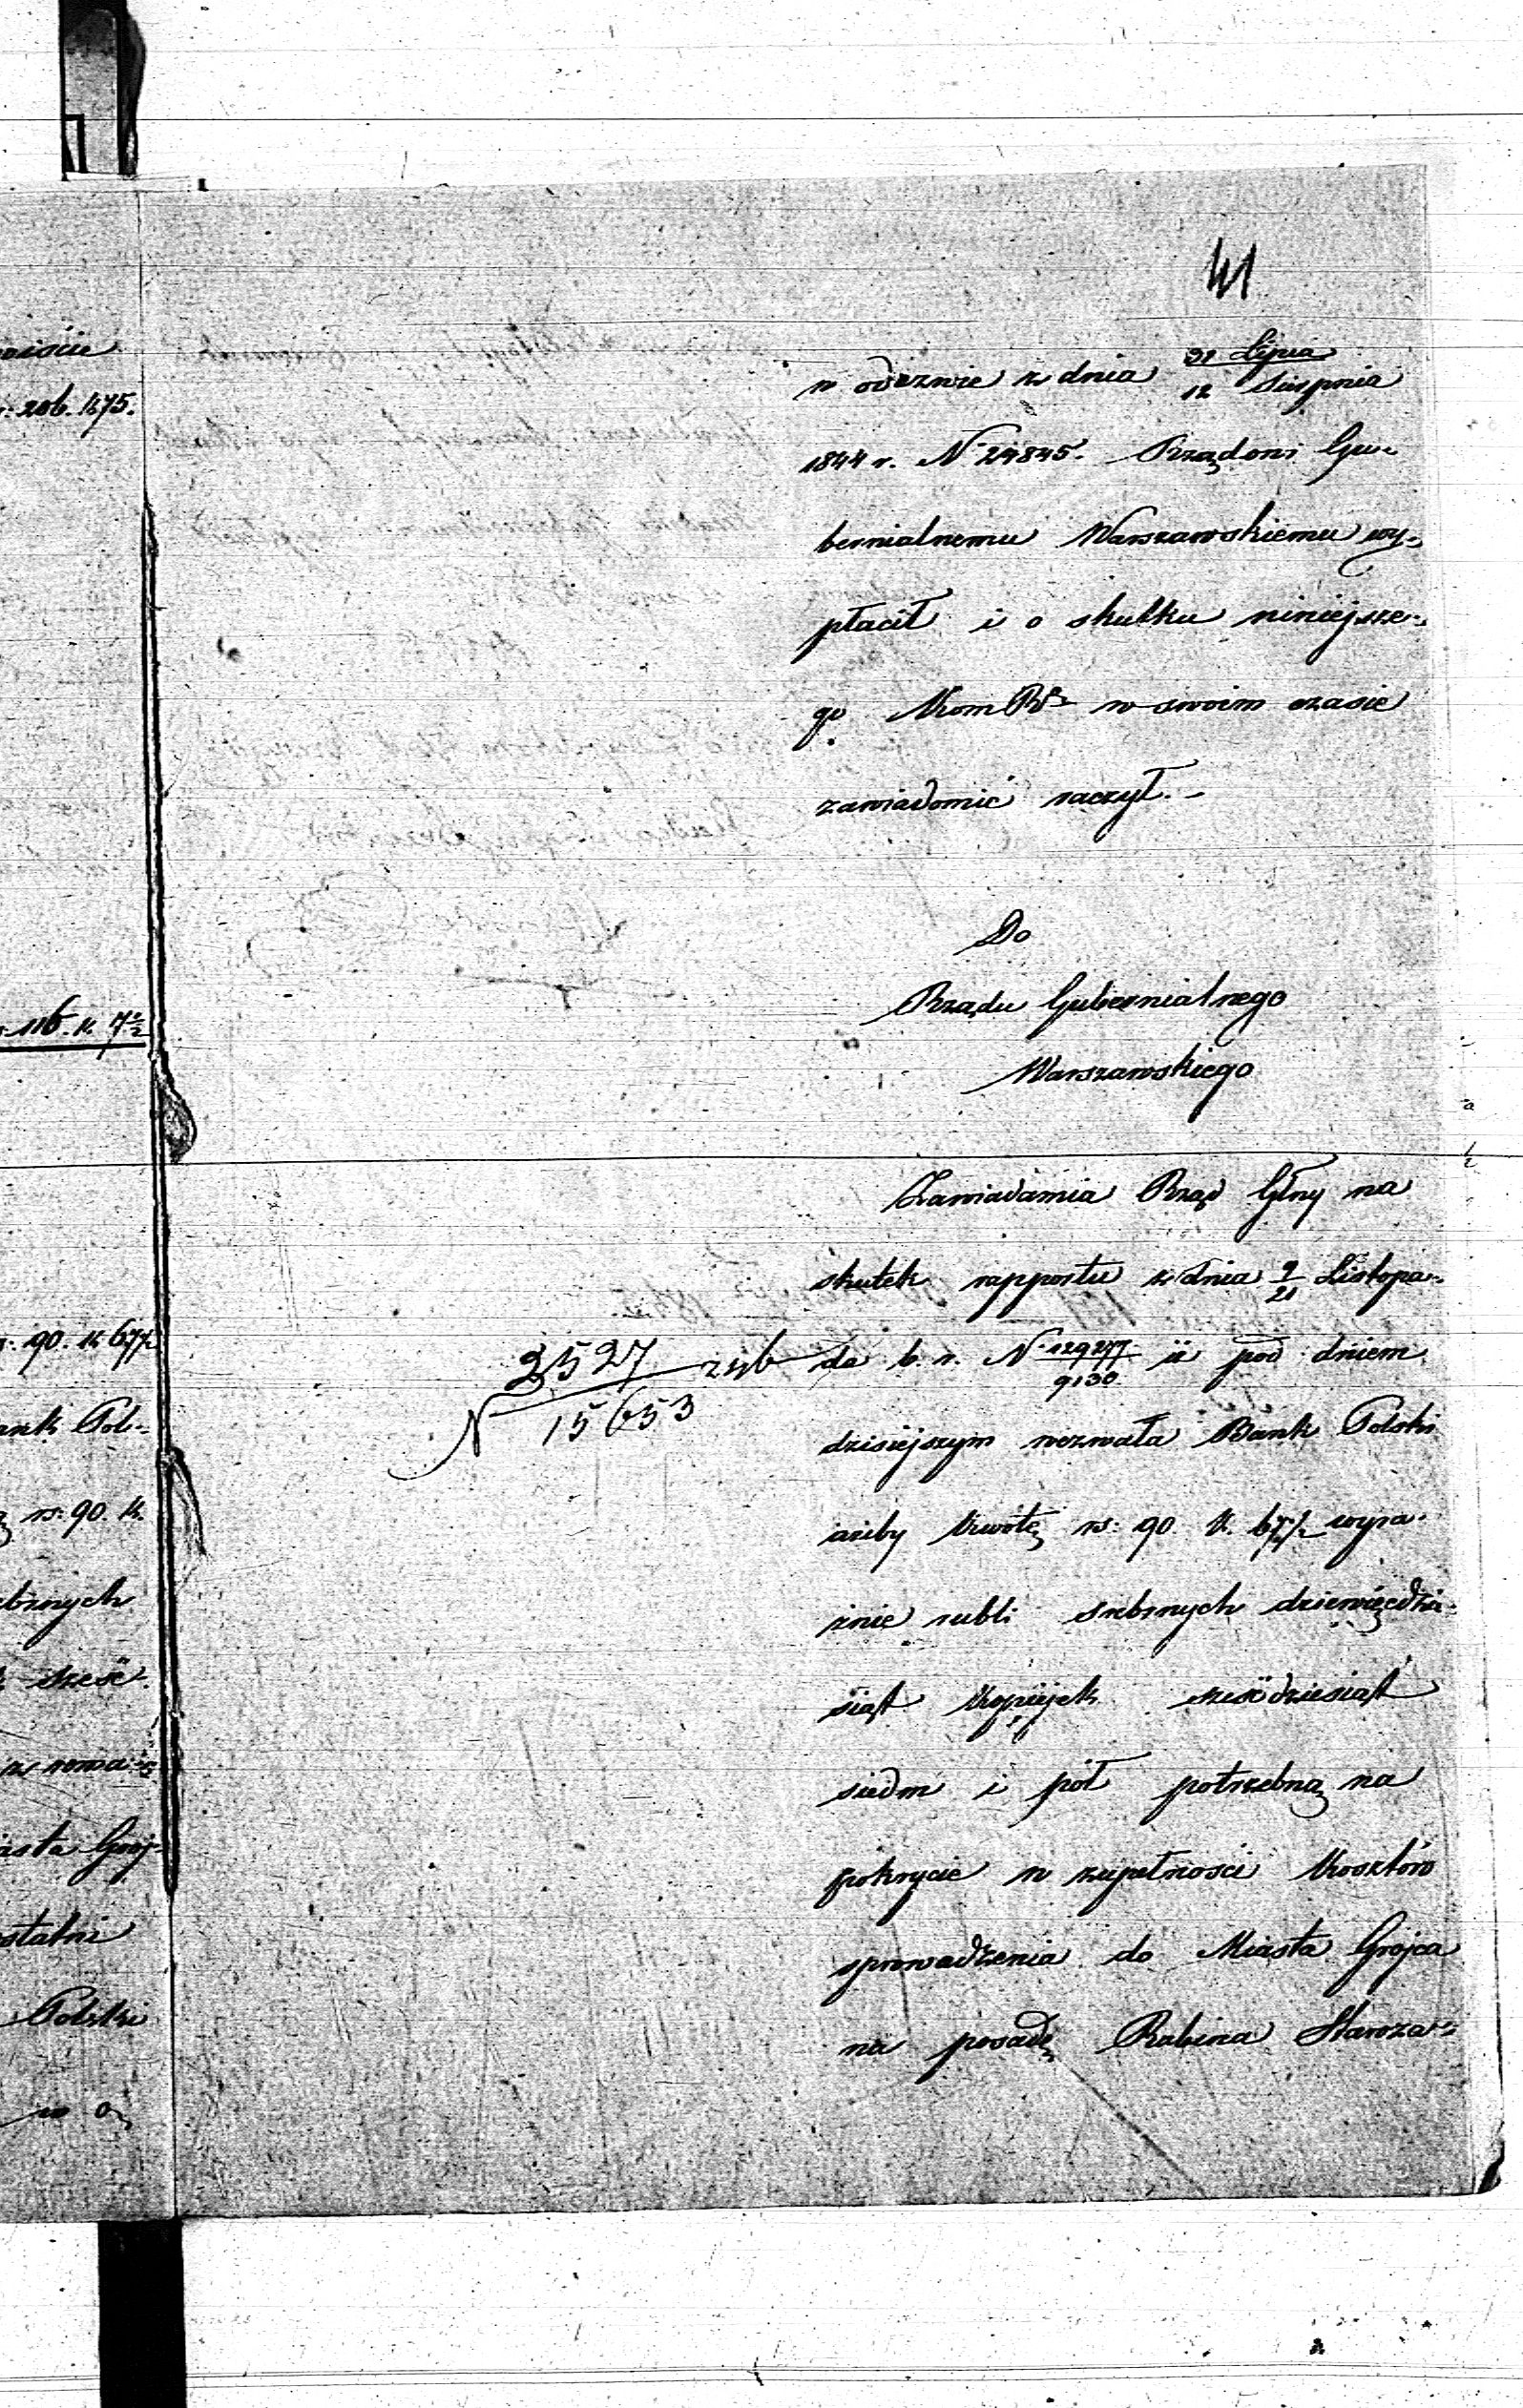 41
w odezwie z dnia 31 Lipca / 12 Sierpnia
1844 r. N 24845. Rządowi Gu-
bernialnemu Warszawskiemu wy-
płacił i o skutku niniejsze-
go Kom Rz w swoim czasie
zawiadomić raczył. -
Do
Rządu Gubernialnego
Warszawskiego
Zawiadamia Rząd Głny na
skutek rapportu z dnia 9/21 Listopa-
da b. r. N 129277/9130 iż pod dniem
N 2527/15653
dzisiejszym wezwała Bank Polski
ażeby kwotę rs: 90 k. 67½ wyra-
źnie rubli srebrnych dziewięćdzie-
siąt kopijek sześćdziesiąt
siedm i pół potrzebną na
pokrycie w zupełności kosztów
sprowadzenia do Miasta Grojca
na posadę Rabina Staroza-
: 206. k 75.
116. k. 7½
: 90. k 67½
ank Pol-
rs: 90. k.
ebrnych
sześć
iasta Groj-
ostatni
Polski